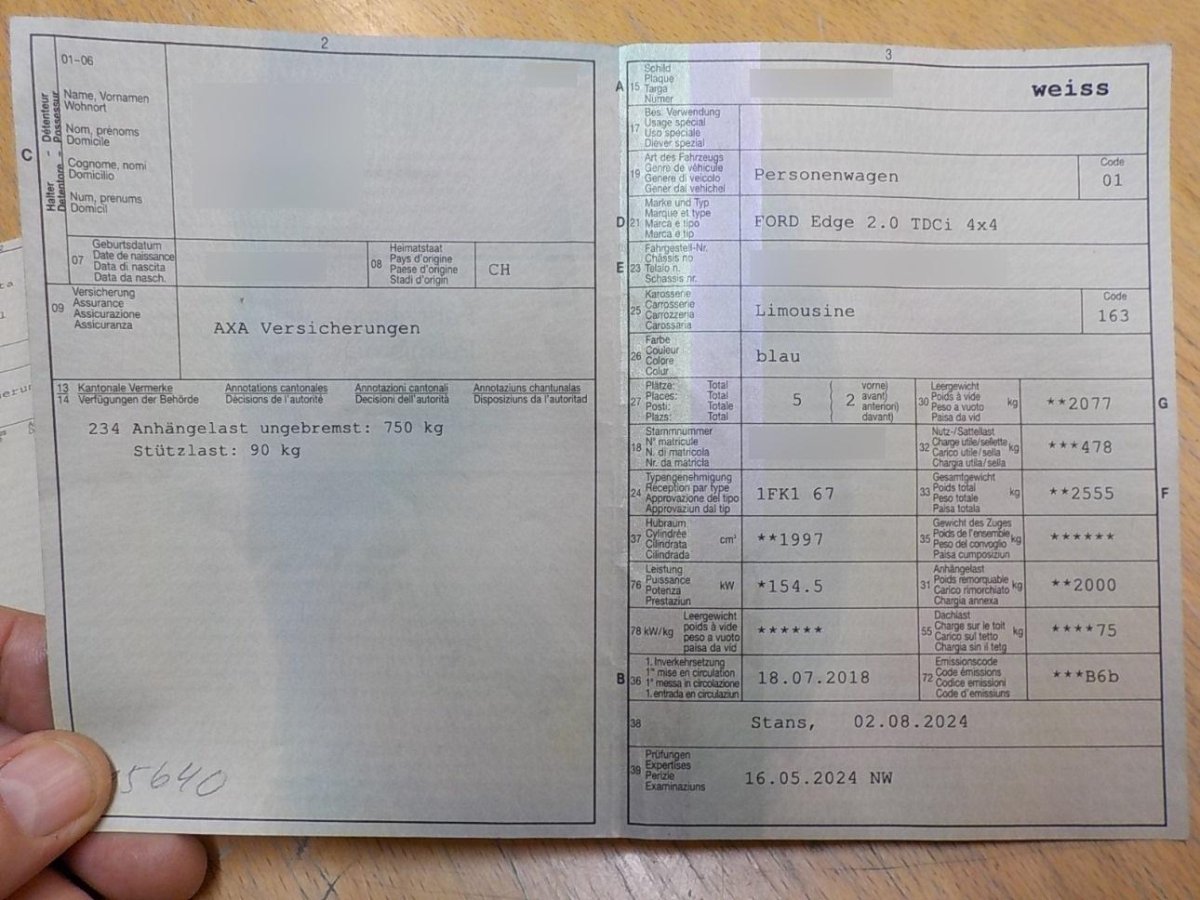 2
01-06
Halter - Détenteur
Detentore - Possessur
C
Name, Vornamen
Wohnort
Nom, prénoms
Domicile
Cognome, nomi
Domicilio
Num, prenums
Domicil
07
Geburtsdatum
Date de naissance
Data di nascita
Data da nasch.
08
Heimatstaat
Pays d'origine
Paese d'origine
Stadi d'origin
CH
09
Versicherung
Assurance
Assicurazione
Assicuranza
AXA Versicherungen
13 Kantonale Vermerke Annotations cantonales Annotazioni cantonali Annotaziuns chantunalas
14 Verfügungen der Behörde Décisions de l'autorité Decisioni dell'autorità Disposiziuns da l'autoritad
234 Anhängelast ungebremst: 750 kg
Stützlast: 90 kg
5640
3
A 15
Schild
Plaque
Targa
Numer
weiss
17
Bes. Verwendung
Usage spécial
Uso speciale
Diever spezial
19
Art des Fahrzeugs
Genre de véhicule
Genere di veicolo
Gener dal vehichel
Personenwagen
Code
01
D 21
Marke und Typ
Marque et type
Marca e tipo
Marca e tip
FORD Edge 2.0 TDCi 4x4
E 23
Fahrgestell-Nr.
Châssis no
Telaio n.
Schassis nr.
25
Karosserie
Carrosserie
Carrozzeria
Carossaria
Limousine
Code
163
26
Farbe
Couleur
Colore
Colur
blau
27
Plätze: Total
Places: Total
Posti: Totale
Plazs: Total
5
( vorne)
2 avant)
anteriori)
( davant)
30
Leergewicht
Poids à vide
Peso a vuoto
Paisa da vid
kg
**2077
G
18
Stammnummer
N° matricule
N. di matricola
Nr. da matricla
32
Nutz-/Sattellast
Charge utile/sellette
Carico utile/sella
Chargia utila/sella
kg
***478
24
Typengenehmigung
Réception par type
Approvazione del tipo
Approvaziun dal tip
1FK1 67
33
Gesamtgewicht
Poids total
Peso totale
Paisa totala
kg
**2555
F
37
Hubraum
Cylindrée
Cilindrata
Cilindrada
cm³
**1997
35
Gewicht des Zuges
Poids de l'ensemble
Peso del convoglio
Paisa cumposiziun
kg
******
76
Leistung
Puissance
Potenza
Prestaziun
kW
*154.5
31
Anhängelast
Poids remorquable
Carico rimorchiato
Chargia annexa
kg
**2000
78 kW/kg
Leergewicht
poids à vide
peso a vuoto
paisa da vid
******
55
Dachlast
Charge sur le toit
Carico sul tetto
Chargia sin il tetg
kg
****75
B 36
1. Inverkehrsetzung
1re mise en circulation
1a messa in circolazione
1. entrada en circulaziun
18.07.2018
72
Emissionscode
Code émissions
Codice emissioni
Code d'emissiuns
***B6b
38
Stans, 02.08.2024
39
Prüfungen
Expertises
Perizie
Examinaziuns
16.05.2024 NW